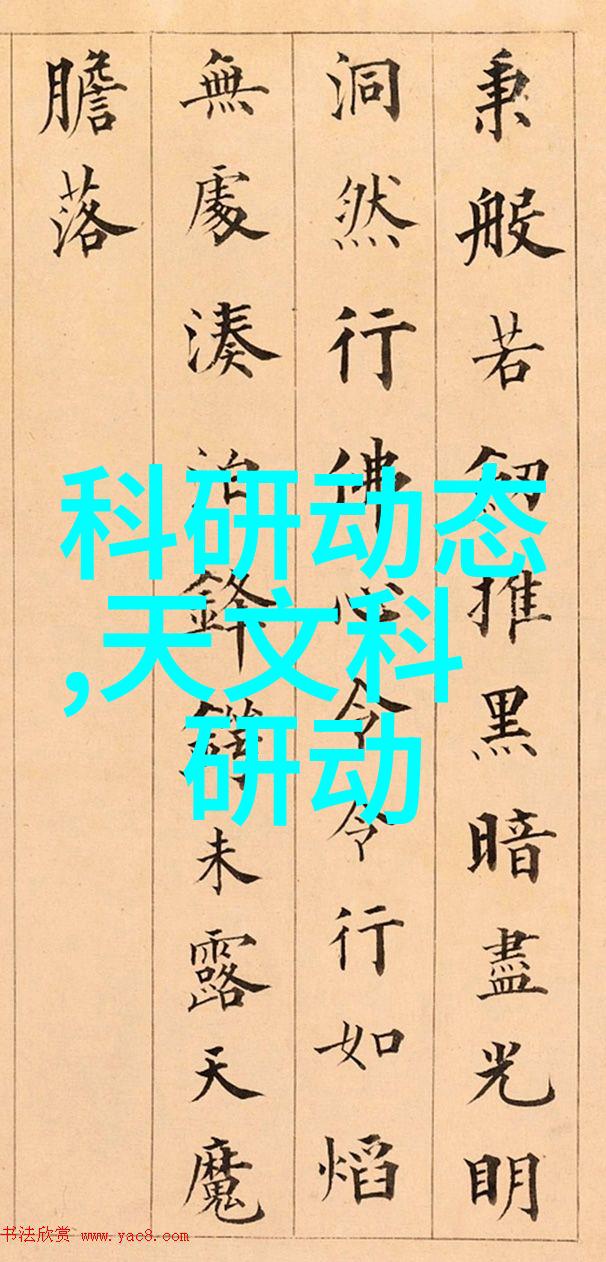 秉般若推黑暗盡光明
洞然行佛心令令行如熖
無處湊泊鋒鋩未露天魔
膽落
科研动态
,天文科
研动
书法欣赏 www.yac8.com